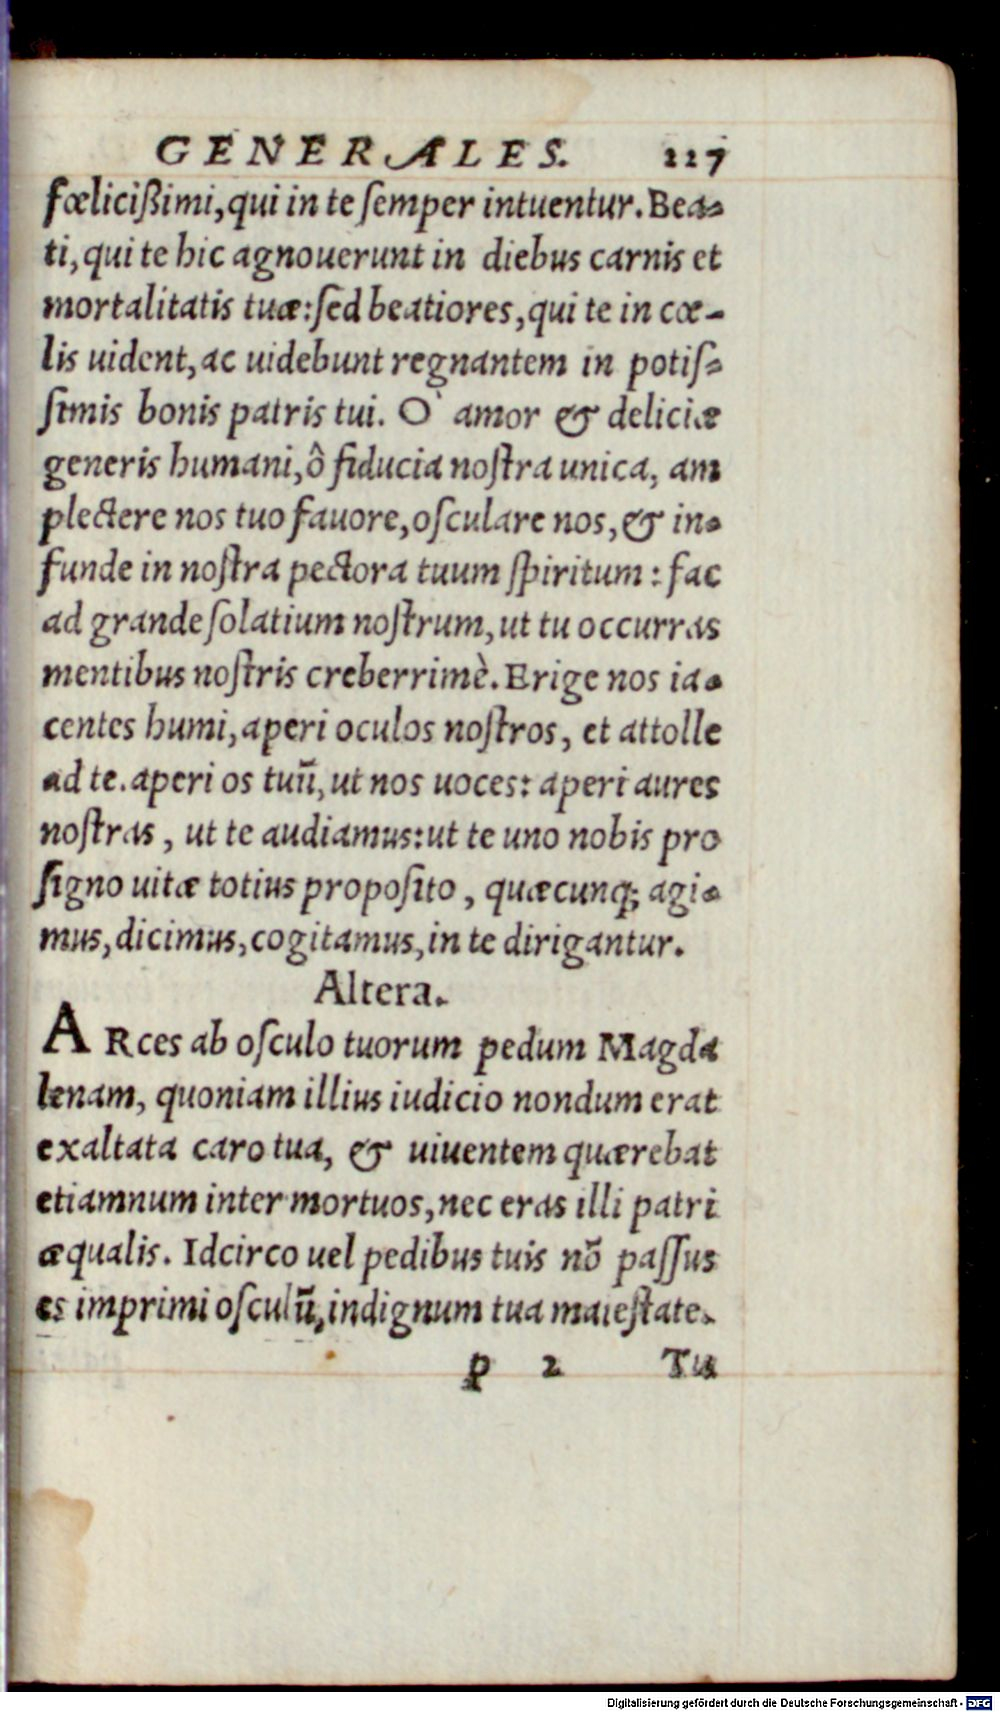 GENERALES. 227
fœlicißimi, qui in te ſemper intuentur. Bea-
ti, qui te hic agnouerunt in diebus carnis et
mortalitatis tuæ: ſed beatiores, qui te in cœ-
lis uident, ac uidebunt regnantem in potiſ-
ſimis bonis patris tui. O` amor & deliciæ
generis humani, ô fiducia noſtra unica, am
plectere nos tuo fauore, oſculare nos, & in-
funde in noſtra pectora tuum ſpiritum: fac
ad grande ſolatium noſtrum, ut tu occurras
mentibus noſtris creberrimè. Erige nos ia-
centes humi, aperi oculos noſtros, et attolle
ad te. aperi os tuũ, ut nos uoces: aperi aures
noſtras, ut te audiamus: ut te uno nobis pro
ſigno uitæ totius propoſito, quæcunq; agi-
mus, dicimus, cogitamus, in te dirigantur.
Altera.
ARces ab oſculo tuorum pedum Magda
lenam, quoniam illius iudicio nondum erat
exaltata caro tua, & uiuentem quærebat
etiamnum inter mortuos, nec eras illi patri
æqualis. Idcirco uel pedibus tuis nõ paſſus
es imprimi oſculũ, indignum tua maieſtate.
p 2 Tu
Digitalisierung gefördert durch die Deutsche Forschungsgemeinschaft - DFG